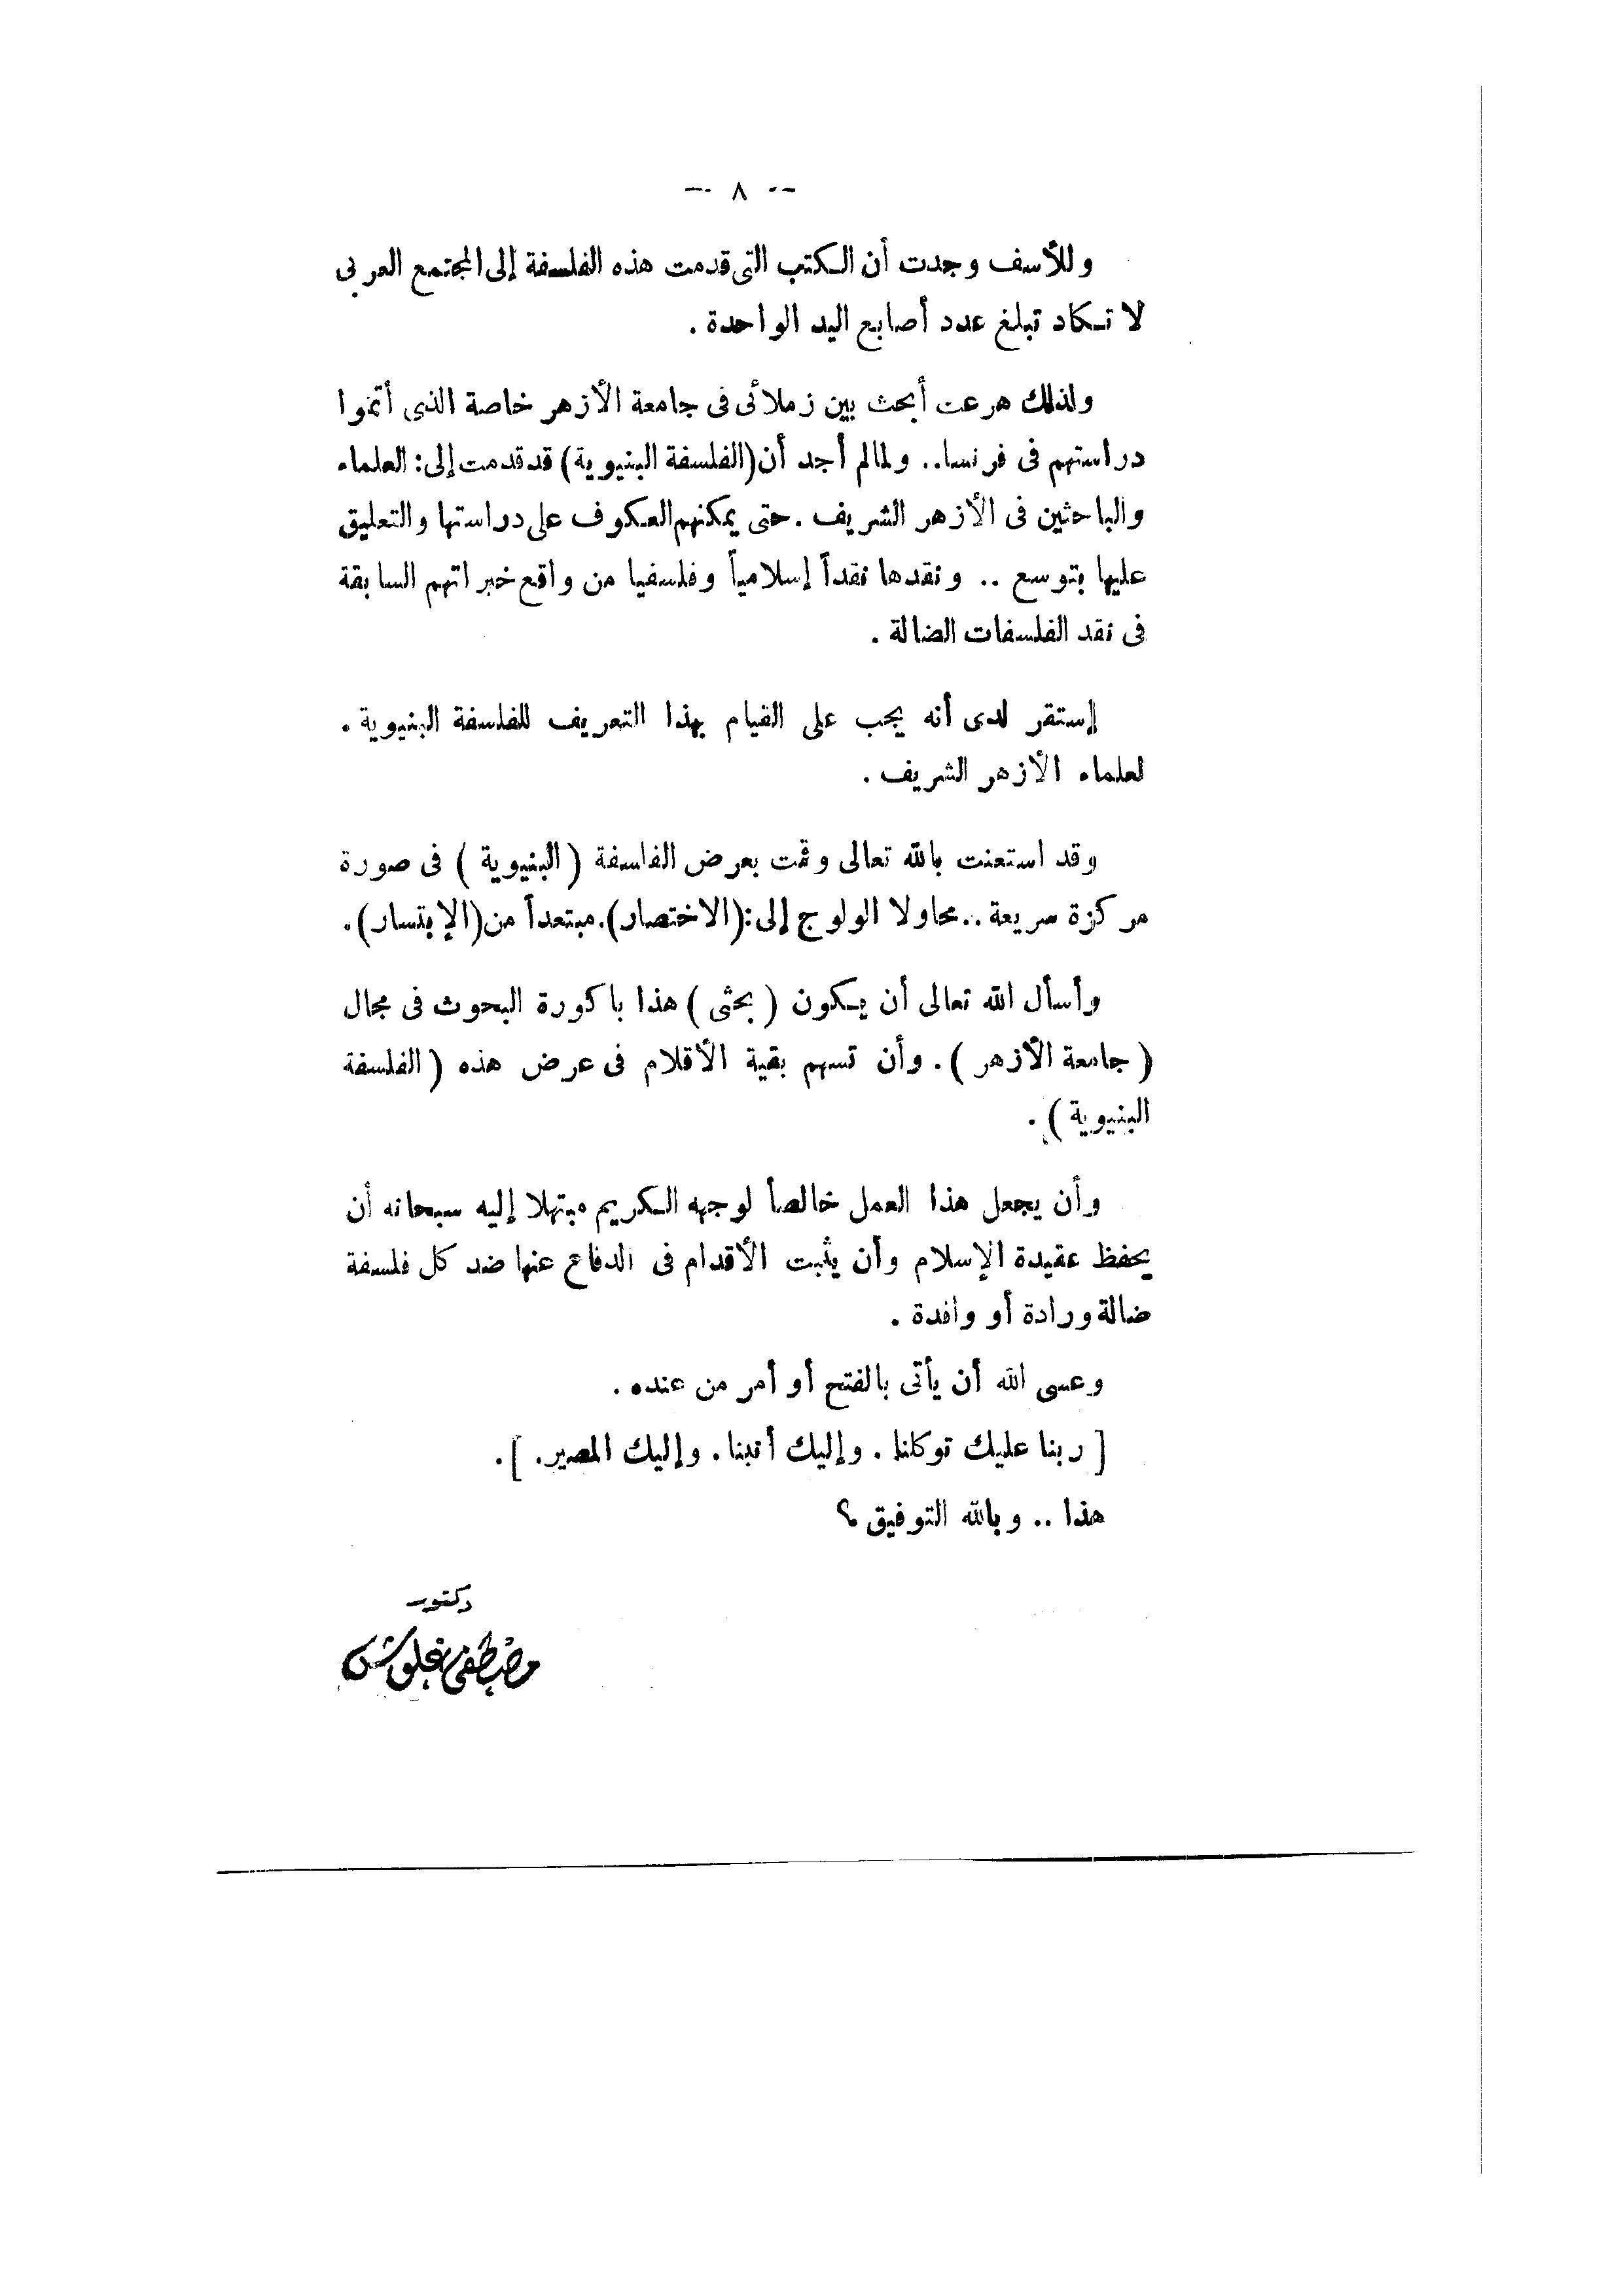 -- ٨ --
وللأسف وجدت أن الكتب التى قدمت هذه الفلسفة إلى المجتمع العربى
لا تكاد تبلغ عدد أصابع اليد الواحدة .
ولذلك هرعت أبحث بين زملائى فى جامعة الأزهر خاصة الذى أتموا
دراستهم فى فرنسا.. ولما لم أجد أن (الفلسفة البنيوية) قد قدمت إلى: العلماء
والباحثين فى الأزهر الشريف . حتى يمكنهم العكوف على دراستها والتعليق
عليها بتوسع .. ونقدها نقداً إسلامياً وفلسفيا من واقع خبراتهم السابقة
فى نقد الفلسفات الضالة .
إستقر لدى أنه يجب على القيام بهذا التعريف للفلسفة البنيوية .
لعلماء الأزهر الشريف .
وقد استعنت بالله تعالى وقمت بعرض الفاسفة ( البنيوية ) فى صورة
مركزة سريعة .. محاولا الولوج إلى: (الاختصار). مبتعداً من (الإبتسار) .
وأسأل الله تعالى أن يكون ( بحثى ) هذا باكورة البحوث فى مجال
( جامعة الأزهر ) . وأن تسهم بقية الأقلام فى عرض هذه ( الفلسفة
البنيوية ) .
وأن يجعل هذا العمل خالصاً لوجهه الكريم مبتهلا إليه سبحانه أن
يحفظ عقيدة الإسلام وأن يثبت الأقدام فى الدفاع عنها ضد كل فلسفة
ضالة ورادة أو وافدة .
وعسى الله أن يأتى بالفتح أو أمر من عنده .
[ ربنا عليك توكلنا . وإليك أنبنا . وإليك المصير. ] .
هذا .. وبالله التوفيق ؟
دكتور
مصطفى غلوش